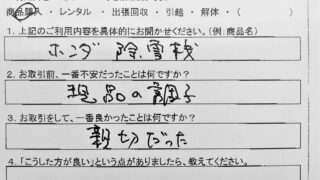 商品購入 ・ レンタル ・ 出張回収 ・ 引越 ・ 解体 ・ (
1. 上記のご利用内容を具体的にお聞かせください。(例:商品名)
ホンダ 除雪機
2. お取引前、一番不安だったことは何ですか?
現品の調子
3. お取引をして、一番良かったことは何ですか?
親切だった
4. 「こうした方が良い」という点がありましたら、教えてください。